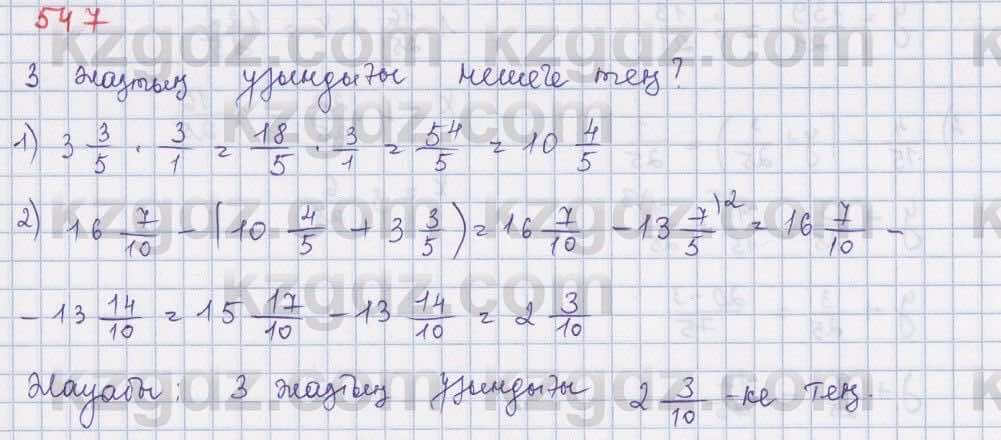 547
3 жақтың ұзындығы нешеге тең?
1) 3 3/5 · 3/1 = 18/5 · 3/1 = 54/5 = 10 4/5
2) 16 7/10 - (10 4/5 + 3 3/5) = 16 7/10 - 13 7/5 )2 = 16 7/10 -
- 13 14/10 = 15 17/10 - 13 14/10 = 2 3/10
Жауабы: 3 жақтың ұзындығы 2 3/10 -ке тең.
kzgdz.com kzgdz.com
kzgdz.com
kzgdz.com kzgdz.com
kzgdz.com
kzgdz.com kzgdz.com